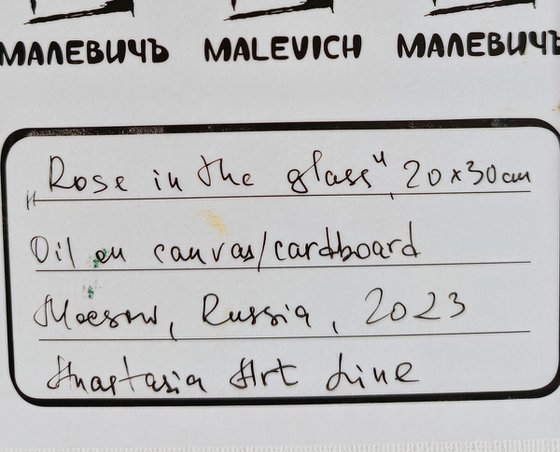 МАЛЕВИЧЪ MALEVICH МАЛЕВИЧЪ
„Rose in the glass“, 20x30cm
Oil on canvas/cardboard
Moscow, Russia, 2023
Anastasia Art Line